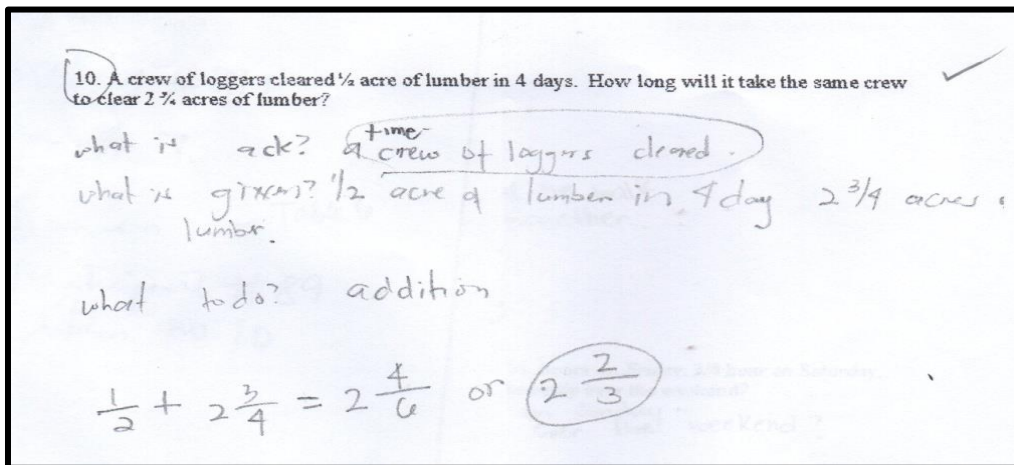 10. A crew of loggers cleared ½ acre of lumber in 4 days. How long will it take the same crew
to clear 2 ¾ acres of lumber?
what is ack? a time crew of loggers cleared.
what is given? 1/2 acre of lumber in 4 day 2 3/4 acres
lumbr.
what to do? addition
1/2 + 2 3/4 = 2 4/6 or 2 2/3